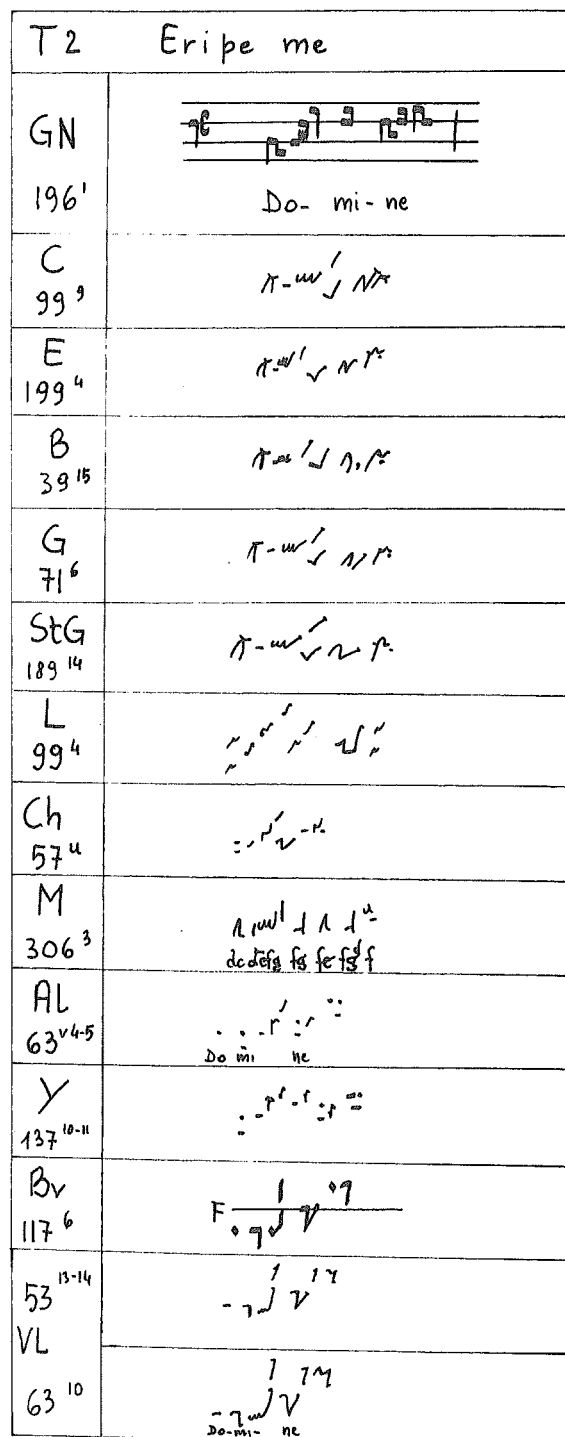 T2 Eripe me
GN
196¹
Do- mi- ne
C
99⁹
E
199⁴
B
39¹⁵
G
71⁶
StG
189¹⁴
L
99⁴
Ch
57⁴
M
306³
dc defg fg fe fgg f
AL
63ᵛ⁴⁻⁵
Do mi ne
Y
137¹⁰⁻¹¹
Bv
117⁶
F
53¹³⁻¹⁴
VL
63¹⁰
Do-mi- ne